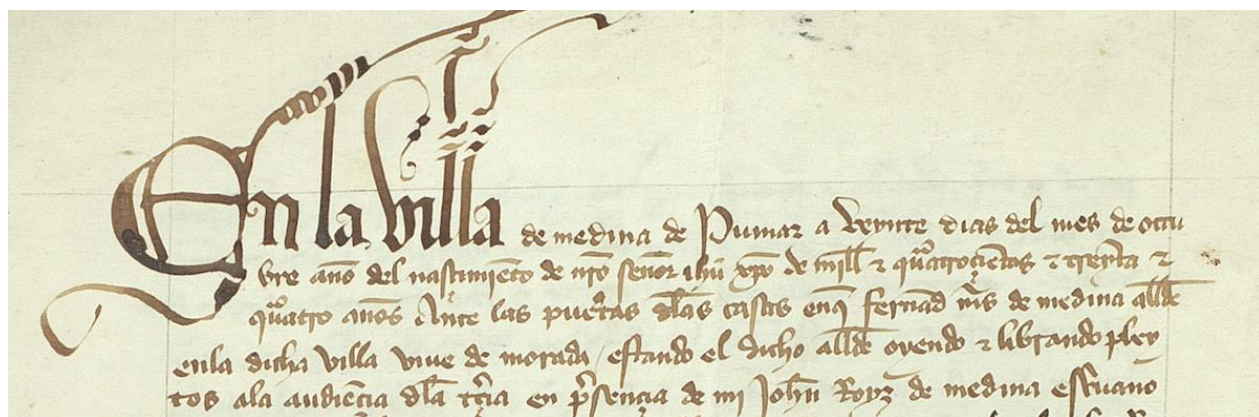 En la villa de medina de Pumar a veynte dias del mes de octu
vre año del nasçimjẽto de nr̃o señor ihũ xp̃o de mjll τ quatroçiẽtos τ treynta τ
quatro años Ante las puertas dlas casas enq̃ ferrnãd mr̃s de medina allde
enla dicha villa vive de morada / estando el dicho allde oyendo τ librando pley
tos ala audiẽcia dla tr̃çia en pr̃sençia de mj Joh̃n Royz de medina escriuano